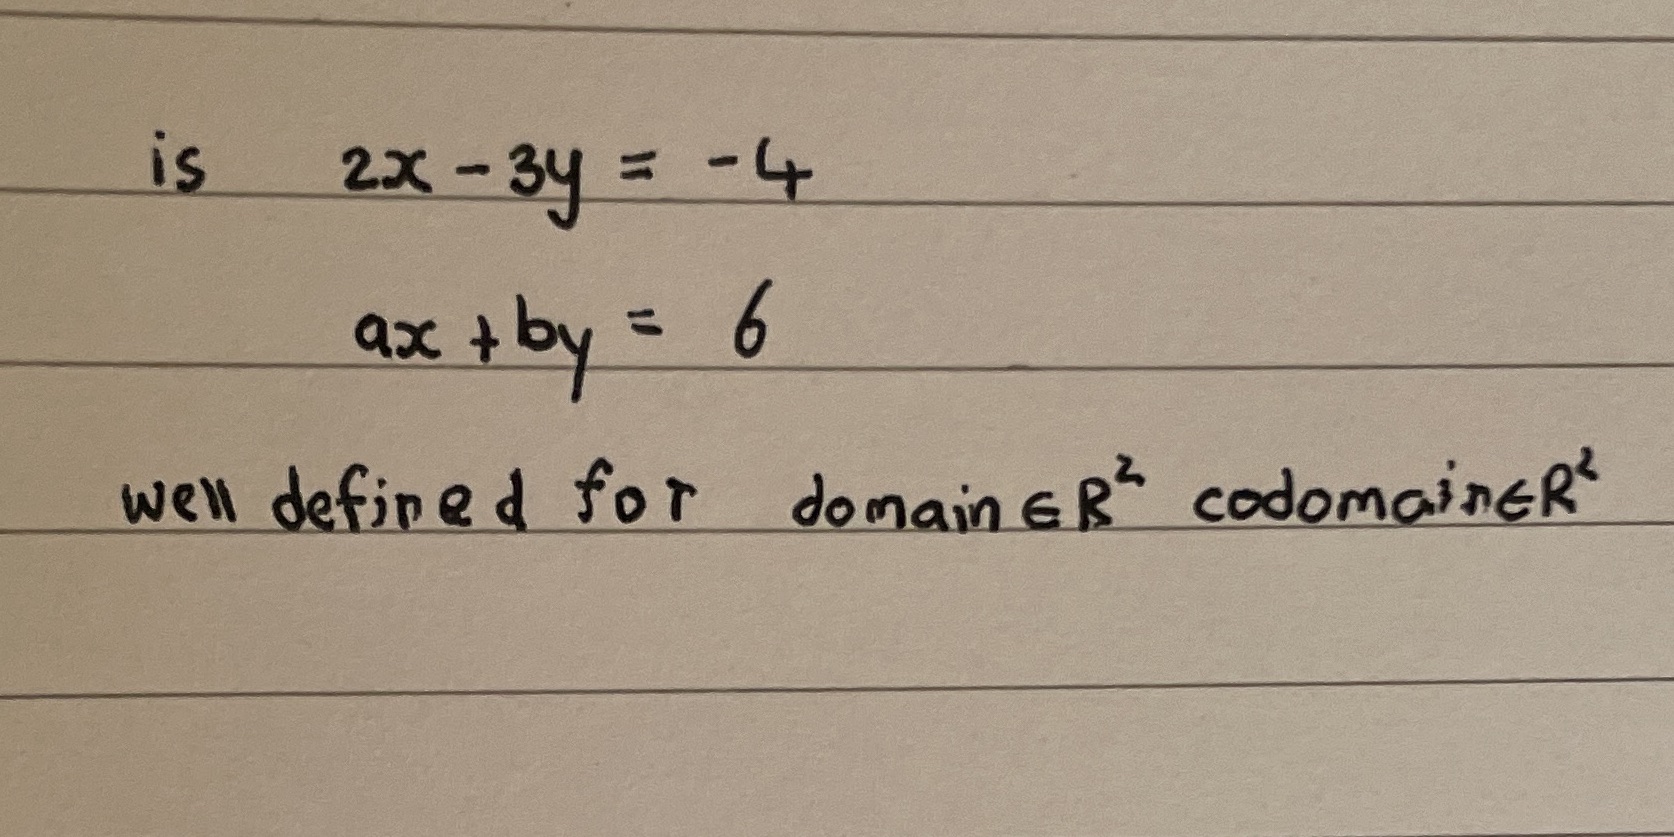 is 2x - 3y = -4
ax + by = 6
well defined for domain ∈ R² codomain ∈ R²